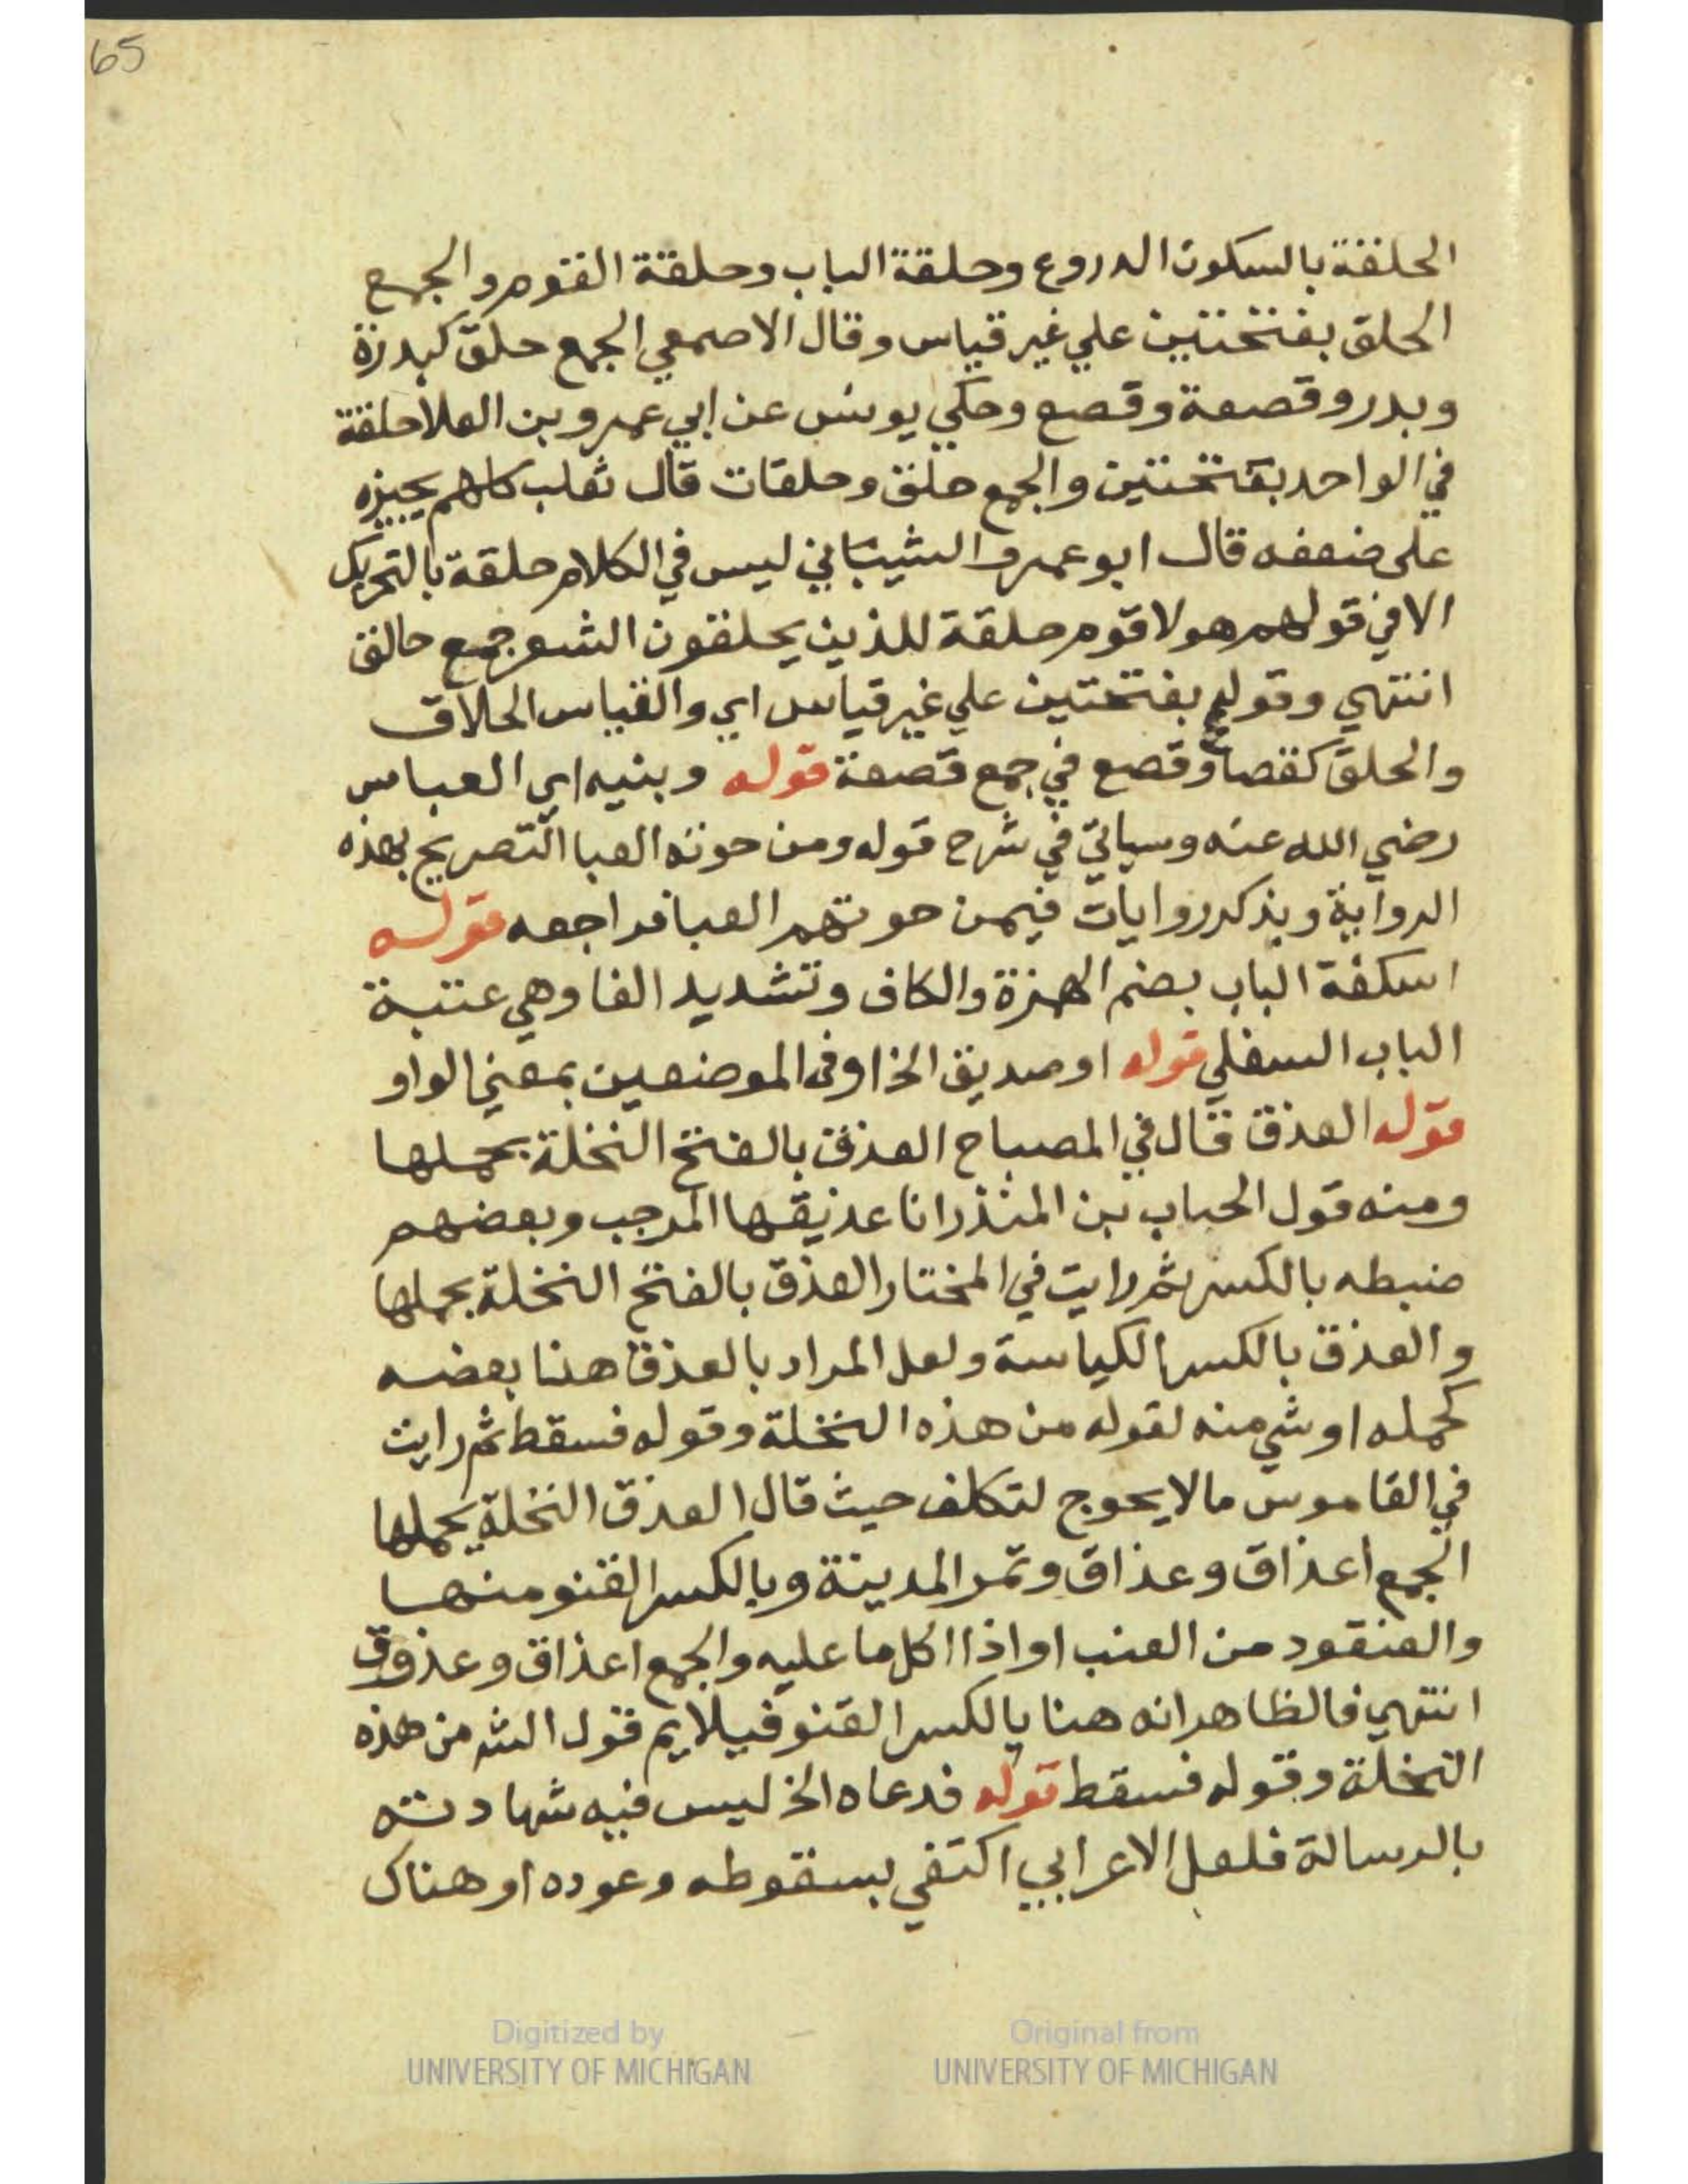 65
الحلقة بالسكون الدروع وحلقة الباب وحلقة القوم والجمع
الحلق بفتحتين علي غير قياس وقال الاصمعي الجمع حلق كبدرة
وبدر وقصعة وقصع وحكي يونس عن ابي عمرو بن العلا حلقة
في الواحد بفتحتين والجمع حلق وحلقات قال ثعلب كلهم يجيزه
على ضعفه قال ابو عمرو الشيباني ليس في الكلام حلقة بالتحريك
الا في قولهم هولا قوم حلقة للذين يحلقون الشعر جمع حالق
انتهي وقوله بفتحتين علي غير قياس اي والقياس الحلاق
والحلق كقصاع وقصع في جمع قصعة قوله وبنيه اي العباس
رضي الله عنه وسياتي في شرح قوله ومن حوته العبا التصريح بهذه
الرواية وبذكر روايات فيمن حوتهم العبا فراجعه قوله
اسكفة الباب بضم الهمزة والكاف وتشديد الفا وهي عتبة
الباب السفلي قوله او صديق الخ او في الموضعين بمعني الواو
قوله العذق قال في المصباح العذق بالفتح النخلة بحملها
ومنه قول الحباب بن المنذر انا عذيقها المرجب وبعضهم
ضبطه بالكسر ثم رايت في المختار العذق بالفتح النخلة بحملها
والعذق بالكسر الكياسة ولعل المراد بالعذق هنا بعضه
كحمله او شي منه لقوله من هذه النخلة وقوله فسقط ثم رايت
في القاموس ما لا يحوج لتكلف حيث قال العذق النخلة بحملها
الجمع اعذاق وعذاق وتمر المدينة وبالكسر القنو منها
والعنقود من العنب او اذا اكل ما عليه والجمع اعذاق وعذوق
انتهي فالظاهر انه هنا بالكسر القنو فيلايم قول الش من هذه
النخلة وقوله فسقط قوله فدعاه الخ ليس فيه شهادته
بالرسالة فلعل الاعرابي اكتفي بسقوطه وعوده او هناك
Digitized by
UNIVERSITY OF MICHIGAN
Original from
UNIVERSITY OF MICHIGAN